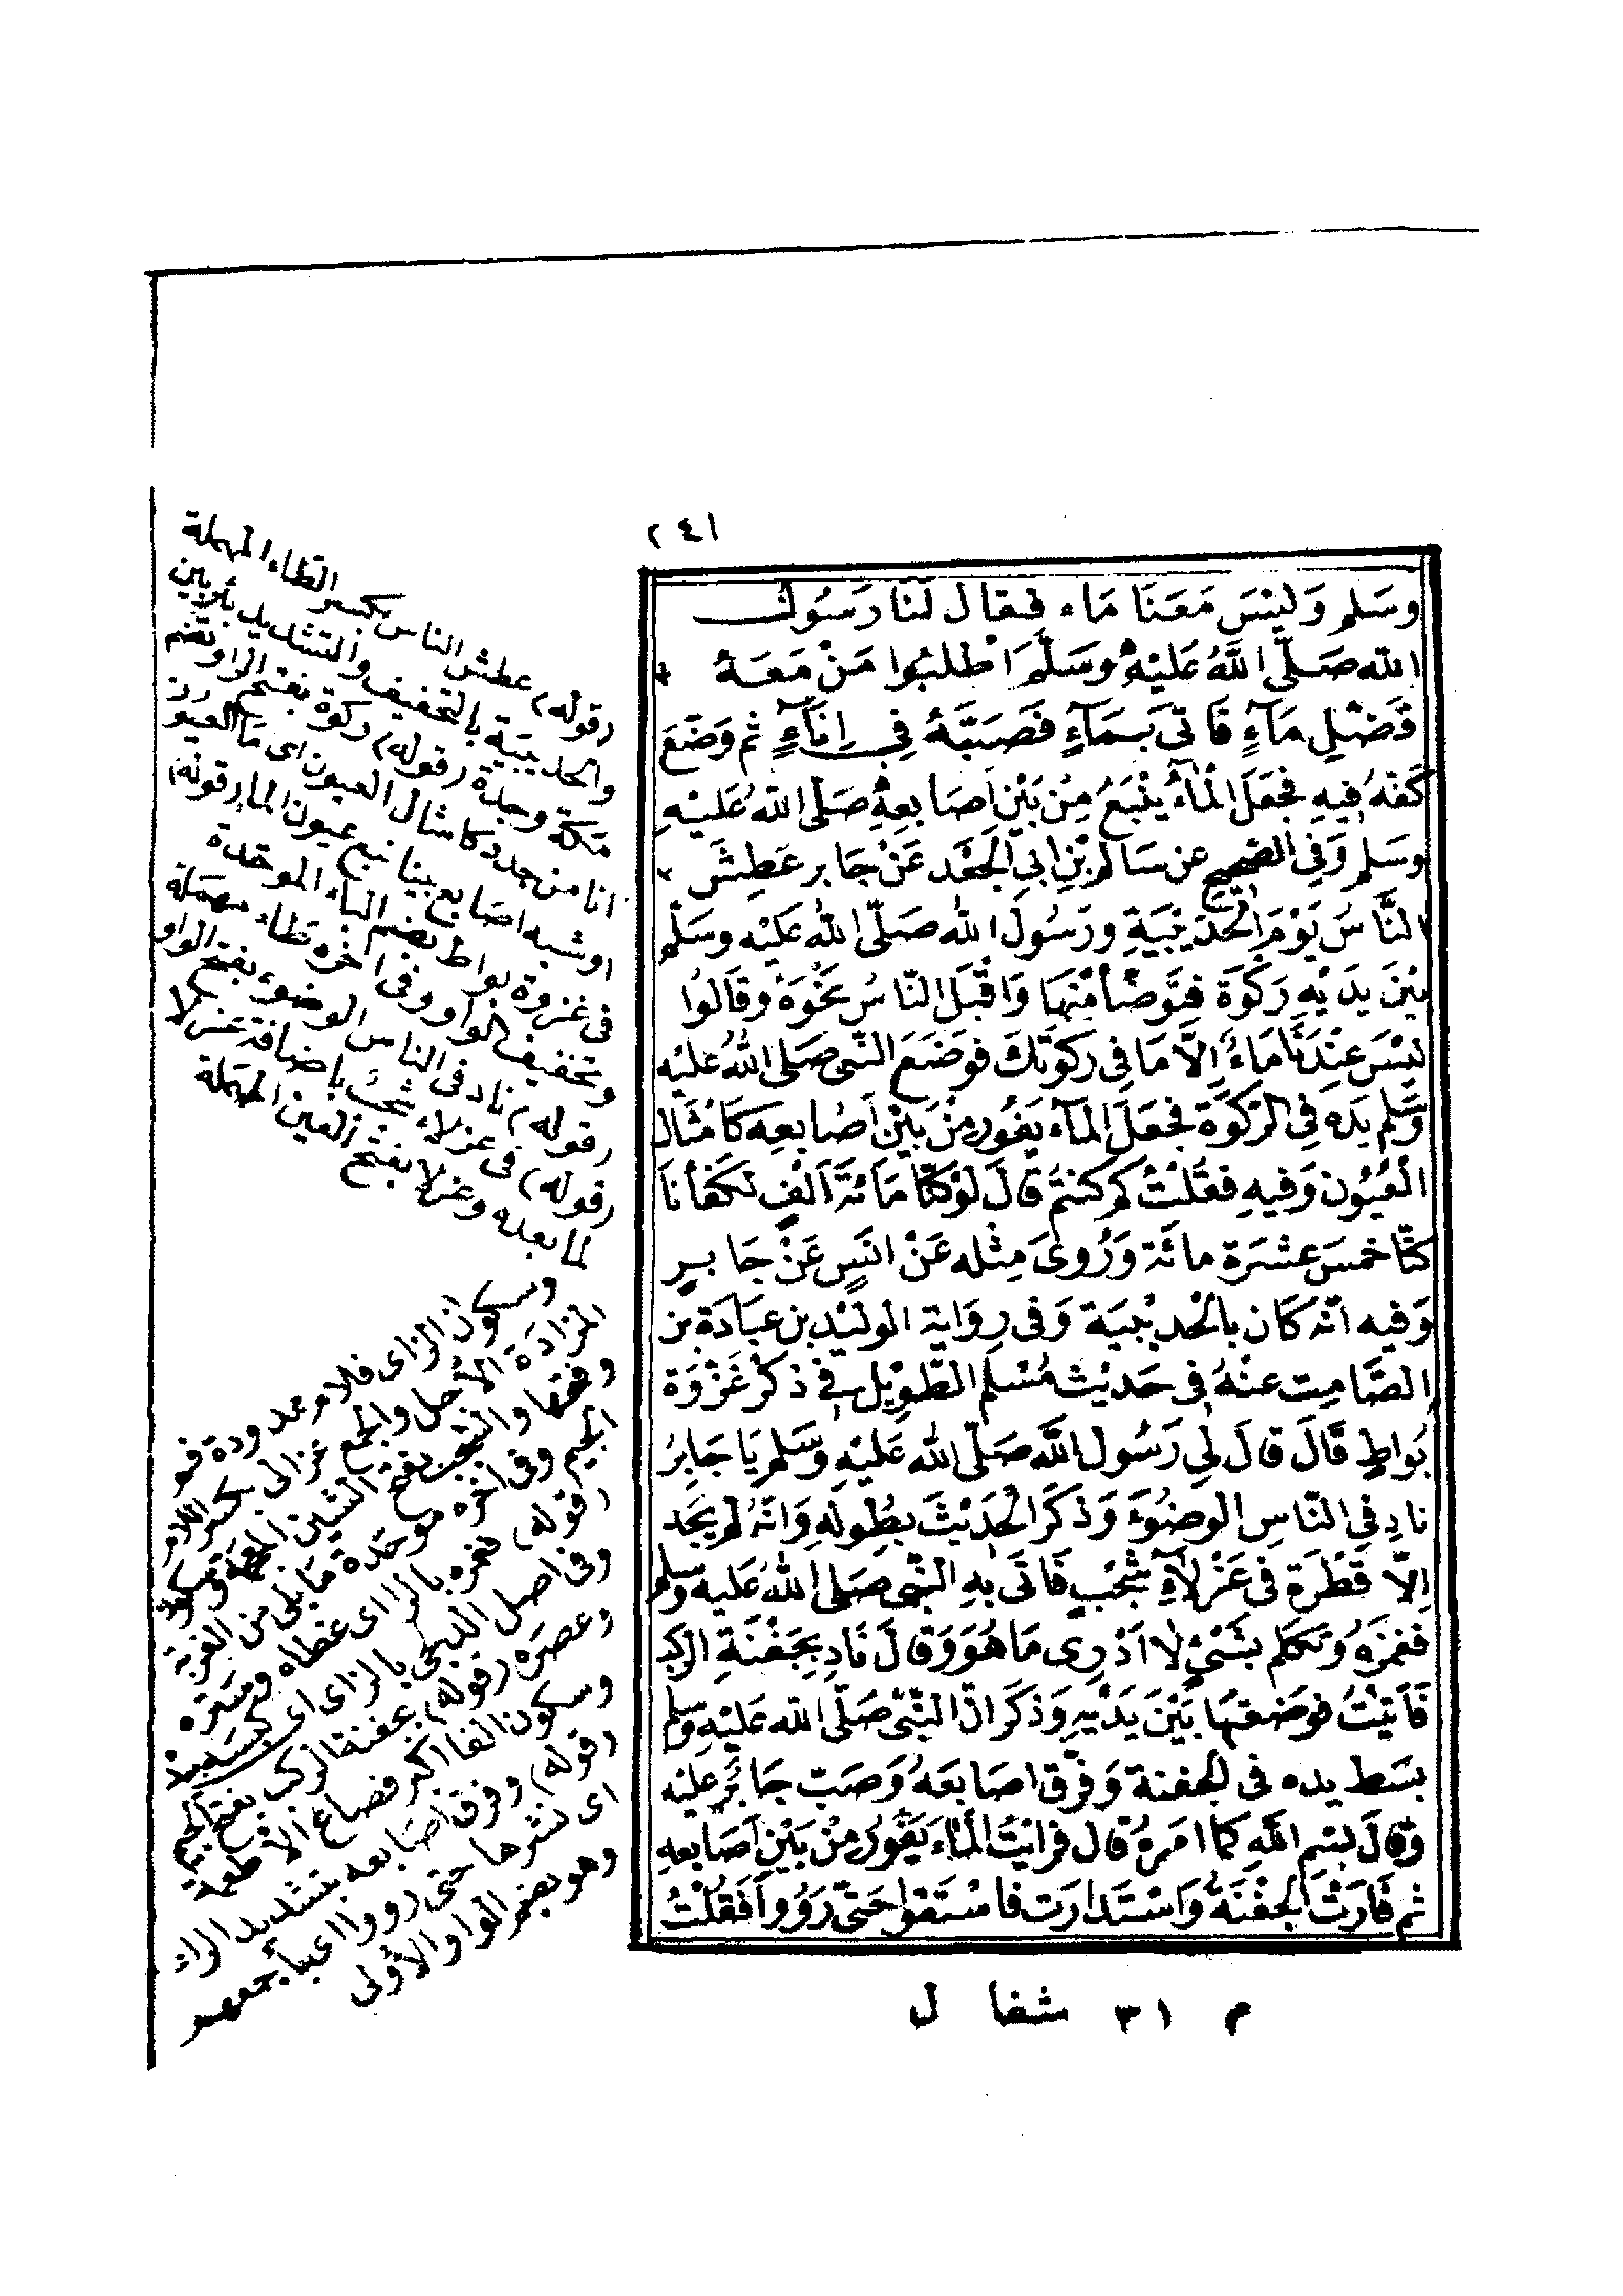 ٢٤١
وسَلم وَليْسَ مَعَنَا مَاء فقال لَنَا رَسُول
الله صَلّى اللّهُ عَليْهِ وسَلَّمَ اطْلبُوا مَنْ مَعَهُ
فَضْلِ مَآءٍ فَاتى بَمَآءٍ فَصَبَّهُ فِي اِنَآءٍ ثم وَضَعَ
كَفَّهُ فِيهِ فجَعَلَ الْمَآءُ يَنْبَعُ مِنْ بَيْنِ اَصَابعِهِ صَلّى اللهُ عَليْهِ
وسَلم وَفِي الصّحيح عن سَالم بْنِ ابى الْجَعْد عَنْ جَابر عَطِشَ
النَّاسُ يَوْمَ الْحُدَيْبِيَةِ ورَسُولُ الله صَلّى اللهُ عَليْه وسَلّم
بَيْنَ يدَيْهِ رَكْوَة فتَوضّأ مْنهَا وَاقْبَلَ النّاسُ نَحْوَهُ وقَالوُا
ليْسَ عِنْدَنَا مَاءٌ اِلاَّ مَا فِى رَكوَتكَ فوَضَعَ النّبى صَلى اللّهُ عليْه
وَسَّلم يَدَه فِى الرّكوَة فجَعَلَ الْمَآء يَفُور مِنْ بَيْنِ اَصَابعِه كَامْثَال
الْعُيُون وَفيهِ فقُلْتُ كم كنتُم قَالَ لوْ كنّا مَائةَ اَلْفٍ لكَفَانَا
كنّا خمسَ عشرَة مائة وَرُوِىَ مِثْله عَنْ انَسٍ عَنْ جَابرٍ
وَفيه انّه كَان بالْحُديْبيَة وَفى رِوَاية الوليْد بن عبَادَة بن
الصَّامِت عنْهُ فى حَديْث مُسْلم الطّوِيْل فى ذكْر غَزْوَة
بُوَاطٍ قَالَ قالَ لِي رَسُول اللَّه صَلّى الله عَليْهِ وَسَّلم يَا جَابِرُ
نادِ فِى النّاسِ الوضُوءَ وَذكرَ الْحَدِيْثَ بطُولهِ وَانّهُ لم يَجد
اِلّا قطْرَة فى عَزْلَاءِ شَجْبٍ فَاتَى بهِ النّبى صَلى اللهُ عَليه وسلم
فغمزَهُ وَتكلم بشَىْءٍ لا ادْرِى مَا هُوَ وَقالَ نَادِ بجَفْنَةِ الركب
فَاَتيْتُ فوَضعتُهَا بَيْنَ يَدْيهِ وَذكَرَ انّ النّبىّ صَلّى الله عَليْهِ وسلم
بسَط يده فى الجفنة وَفرّق اصَابعَهُ وَصَبّ جَابرٌ عليْه
وَقالَ بسْم اللّهِ كما امَرهُ قال فرَايْتُ الْمَاءَ يَفُورُ مِنْ بَيْنِ اَصَابعهِ
ثم فَارَتْ الْجفْنَةُ وَاسْتَدارَت فاسْتَقوْا حَتىّ رَوُوا فَقُلْتُ
م ٣١ شفا ل
(قوله) عطش الناس بكسر الطاء المهملة
والحديبية بالتخفيف والتشديد بئر بين
مكة وجدة (قوله) ركوة بفتح الراء وتضم
اوشبه اصابع بينا نبع عيون الماء (قوله)
فى غزوة بواط بضم الباء الموحدة
وتخفيف الواو وفى اخره طاء مهملة
(قوله) ناد فى الناس الوضوء بفتح الواو
(قوله) فى عزلاء شجب باضافة عزلا
لما بعده وعزلا بفتح العين المهملة
وسكون الزاى فلام ممدودة فم
المزادة الاسفل والجمع عزالى بكسر اللام
وفتحها والشجب بفتح الشين المعجمة وسكون
الجيم وفى اخره موحدة ما بلى من القربة
(قوله) فغمزه بالرا اى غطاه وستره
وفى اصل الدلجى بالزاى اى كبسه بيده
وعصره (قوله) بجفنة الركب بفتح الجيم
وسكون الفا اكبر قصاع الاطعمة
(قوله) وفرق اصابعه بتشديد الراء
اى نشرها حتى رووا اى باجمعهم
وهو بضم الواو الأولى